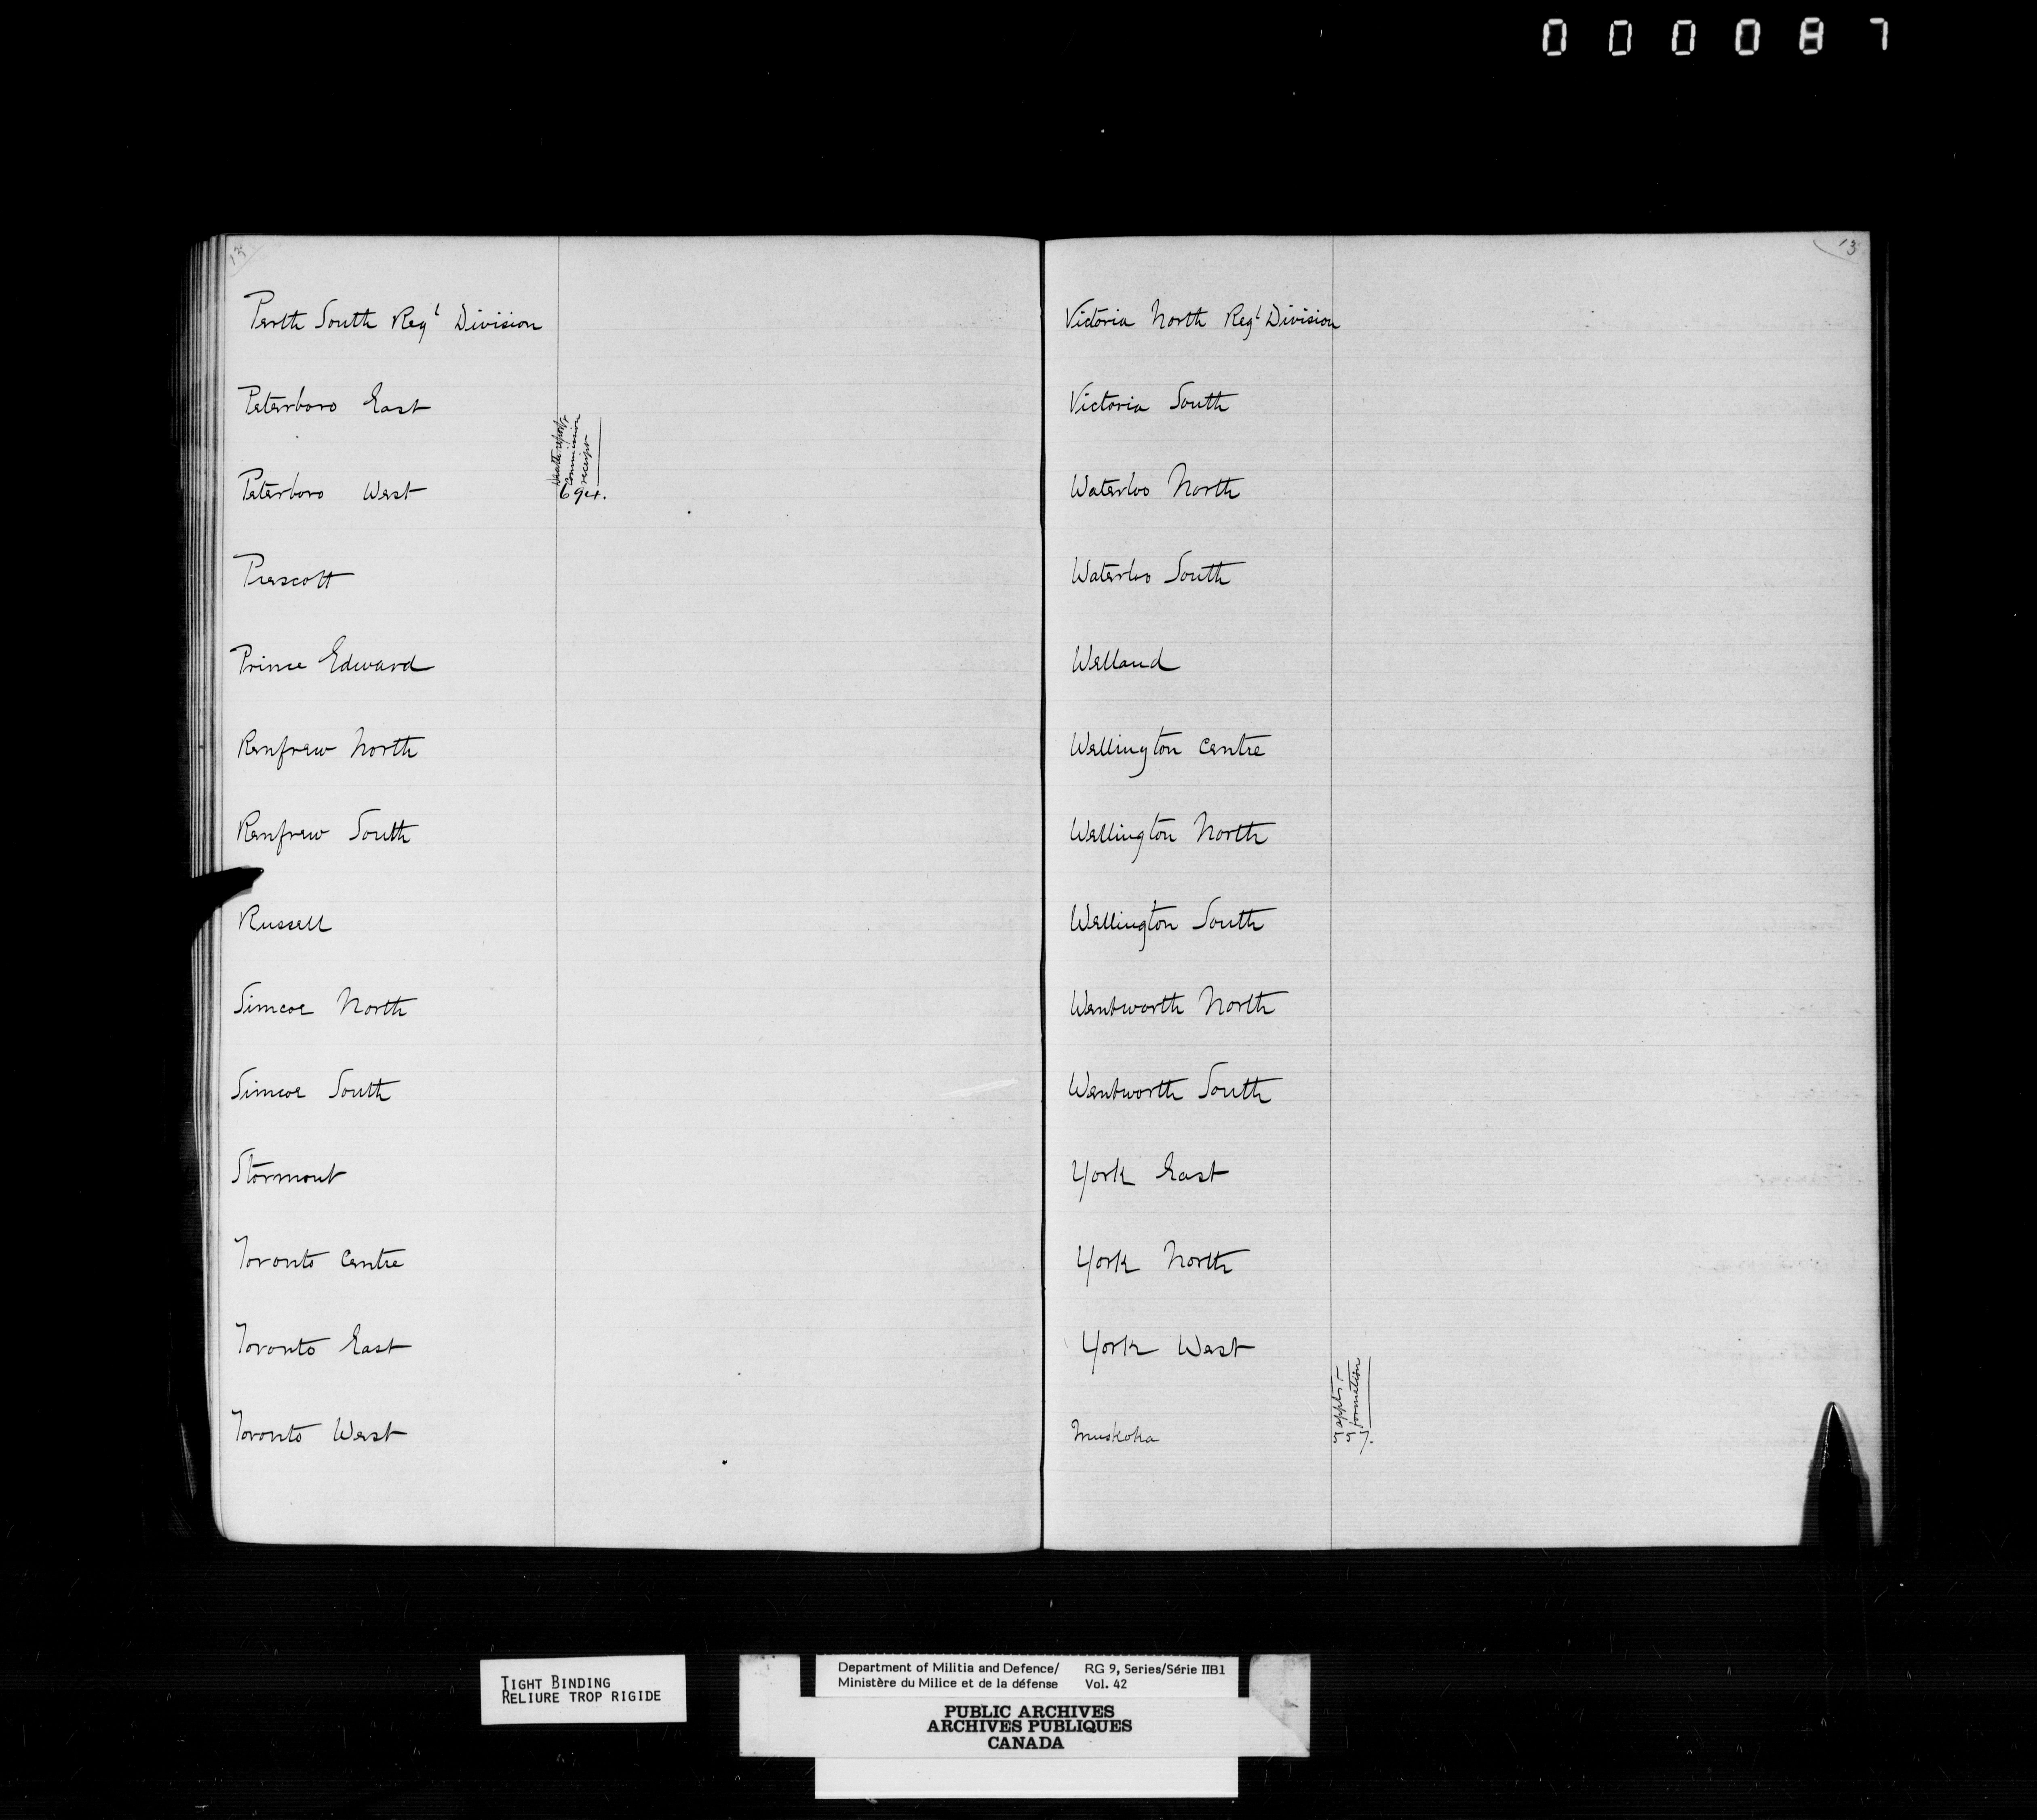 000087
13
Perth South Regl Division
Peterboro East
Peterboro West
commission
receipt
694.
Prescott
Prince Edward
Renfrew North
Renfrew South
Russell
Simcoe North
Simcoe South
Stormont
Toronto Centre
Toronto East
Toronto West
13
Victoria North Regl Division
Victoria South
Waterloo North
Waterloo South
Welland
Wellington Centre
Wellington North
Wellington South
Wentworth North
Wentworth South
York East
York North
York West
Muskoka
formation
TIGHT BINDING
RELIURE TROP RIGIDE
Department of Militia and Defence/
Ministère du Milice et de la défense
RG 9, Series/Série IIB1
Vol. 42
PUBLIC ARCHIVES
ARCHIVES PUBLIQUES
CANADA